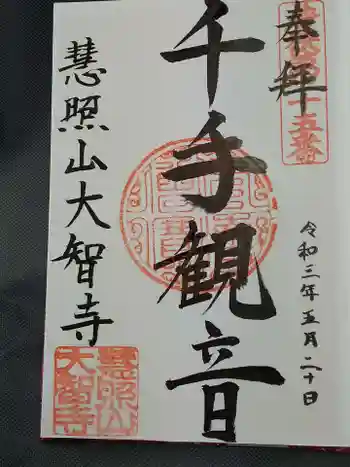 奉拝
千手観音
令和三年五月二十日
慧照山大智寺
慧照山
大智寺